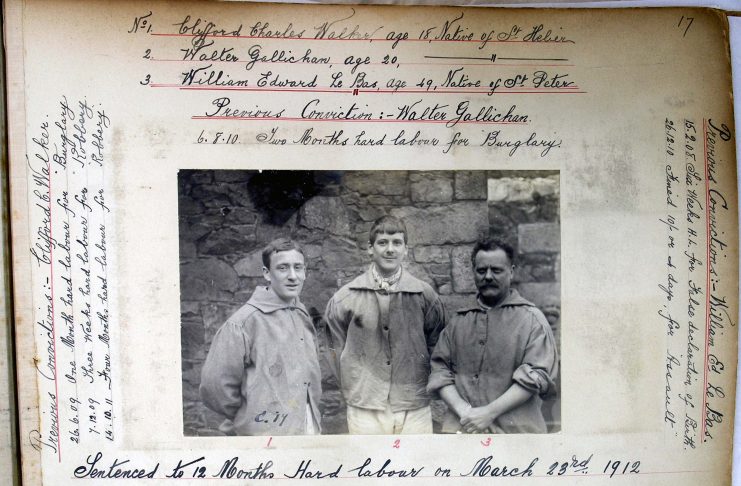 17
No 1. Clifford Charles Walker, age 18, Native of St Helier
2. Walter Gallichan, age 20, — " —
3. William Edward Le Bas, age 49, Native of St Peter
Previous Conviction:- Walter Gallichan.
6. 8. 10. Two Months hard labour for Burglary.
Previous Convictions:- Clifford C. Walker.
26. 6. 09. One Month hard labour for Burglary
7. 12. 09. Three Weeks hard labour for Robbery.
14. 10. 11. Four Months hard labour for Robbery.
Previous Convictions:- William Ed Le Bas.
15. 2. 08. Six Weeks H.L. for False declaration of Birth.
26. 12. 10 Fined 10/- or 4 days, for Assault
1 2 3
Sentenced to 12 Months Hard labour on March 23rd 1912